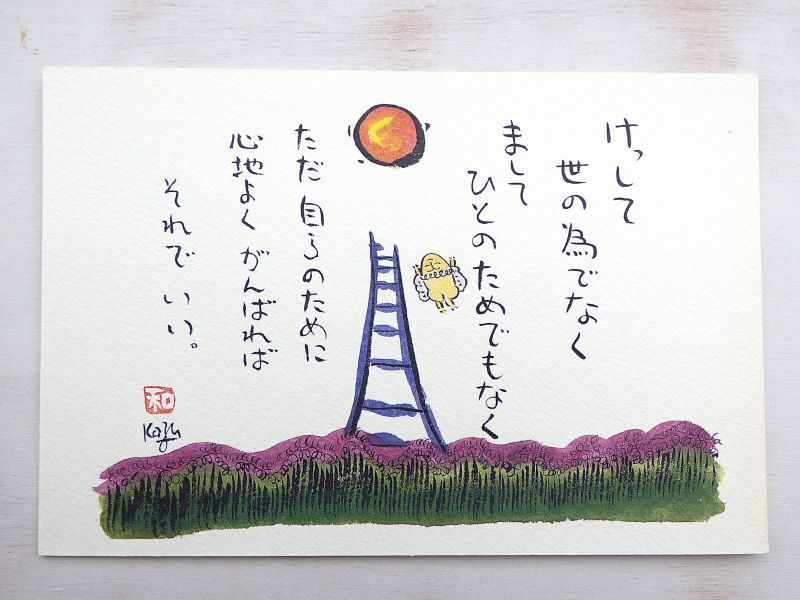 けっして
世の為でなく
まして
ひとのためでもなく
ただ自らのために
心地よくがんばれば
それでいい。
和
Kazu